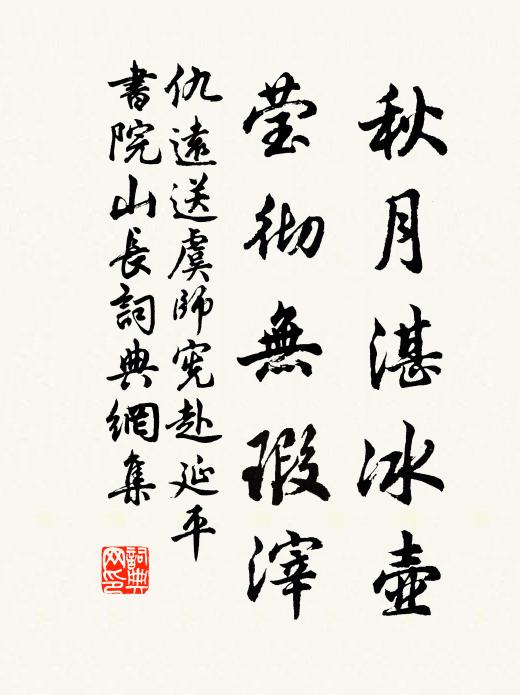 秋月湛冰壺
莹彻無瑕滓
仇遠送虞師宪赴延平
書院山長詞典網集
詞典网印